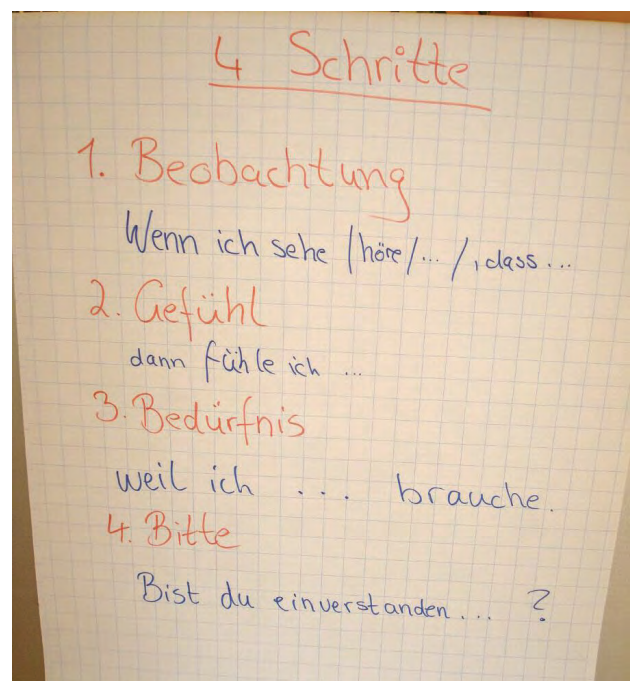 4 Schritte
1. Beobachtung
Wenn ich sehe /höre/... /, dass...
2. Gefühl
dann fühle ich ...
3. Bedürfnis
weil ich ... brauche.
4. Bitte
Bist du einverstanden... ?